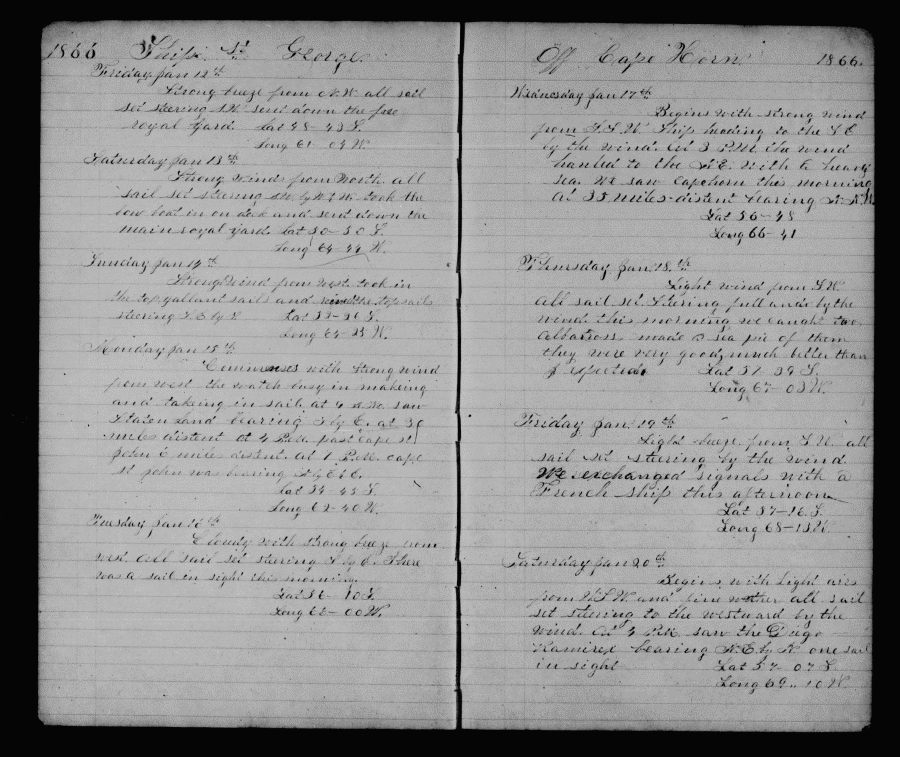 1866 Ship St George
Friday Jan 12th
Strong breeze from N.W. all sail
set steering S.W. sent down the fore
royal yard. Lat 48-43 S.
Long 61-04 W.
Saturday Jan 13th
Strong winds from North all
sail set steering SW by W took the
bow boat in on deck and sent down the
main royal yard. Lat 50-50 S.
Long 64-44 W.
Sunday Jan 14th
Strong wind from west. took in
the top gallant sails and the topsails
steering S.E by S Lat 53-26 S.
Long 64-25 W.
Monday Jan 15th
Commenses with strong wind
from west the watch busy in makeing
and takeing in sail. at 4 A.M. saw
Staten Land bearing S by E. at 30
miles distent at 4 P.M. past cape st
john 6 miles distent. at 7 P.M. cape
st john was bearing
Lat 54-45 S.
Long 62-40 W.
Tuesday Jan 16th
Cloudy with strong breeze from
west all sail set steering S by E. There
was a sail in sight this morning.
Lat 56-10 S.
Long 65-00 W.
Off Cape Horn 1866.
Wednesday Jan 17th
Begins with strong wind
from S.S.W. Ship heading to the S.E
by the wind. At 3 P.M. the wind
hauled to the S.E. with a heavy
sea. We saw Capehorn this morning
at 35 miles distent bearing N.N.W.
Lat 56-48
Long 66-41
Thursday Jan 18th
Light wind from S.W.
all sail set Stering full and by the
wind. this morning we caught two
Albatross made a sea pie of them
they were very good, much better than
I expected. Lat 57-39 S.
Long 67-03 W.
Friday Jan 19th
Light breeze from S.W. all
sail set steering by the wind
We exchanged signals with a
French ship this afternoon
Lat 57-26 S.
Long 68-13 W.
Saturday Jan 20th
Begins with Light airs
from W.S.W. and fine wether all sail
set steering to the westward by the
wind. At 4 P.M. saw the Diego
Ramirez bearing N.E by N one sail
in sight Lat 57-07 S.
Long 69-10 W.